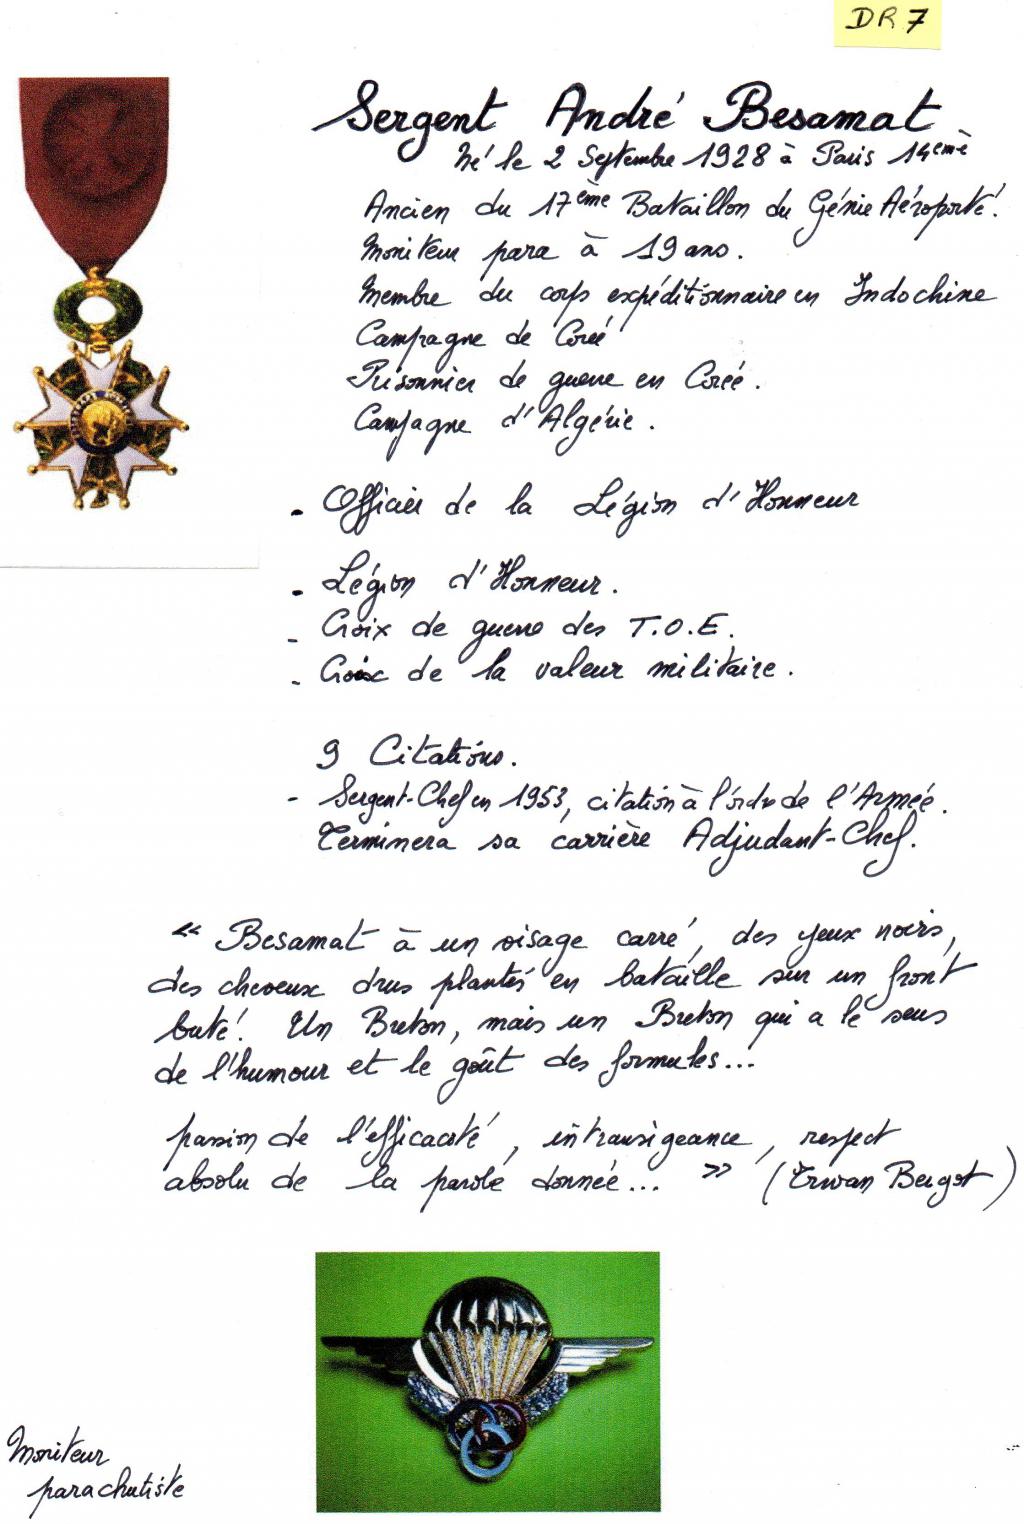 DR 7
Sergent André Besamat
Né le 2 Septembre 1928 à Paris 14ème
Ancien du 17ème Bataillon du Génie Aéroporté.
Moniteur para à 19 ans.
Membre du corps expéditionnaire en Indochine
Campagne de Coréé
Prisonnier de guerre en Coréé.
Campagne d'Algérie.
- Officier de la Légion d'Honneur
- Légion d'Honneur.
- Croix de guerre des T.O.E.
- Croix de la valeur militaire.
9 Citations.
- Sergent-Chef en 1953, citation à l'ordre de l'Armée.
Terminera sa carrière Adjudant-Chef.
« Besamat à un visage carré, des yeux noirs,
des cheveux drus plantés en bataille sur un front
buté! Un Breton, mais un Breton qui a le sens
de l'humour et le goût des formules...
passion de l'efficacité, intransigeance, respect
absolu de la parole donnée... » (Erwan Bergot)
Moniteur
parachutiste